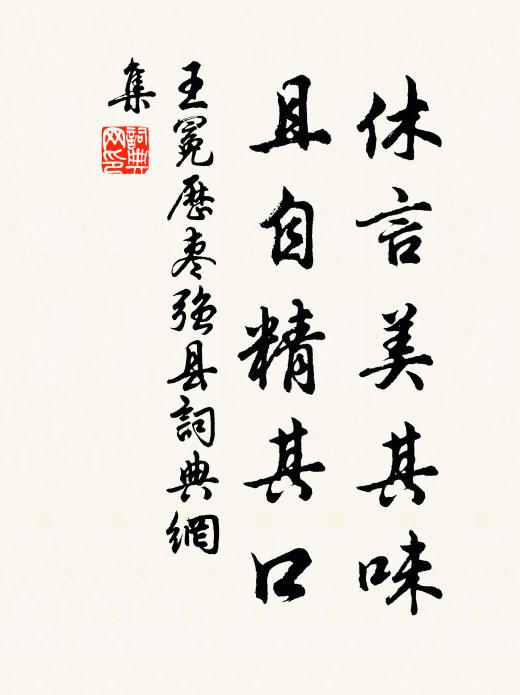 休言美其味
且自精其口
王冕歷枣强县詞典網
集
詞典網印